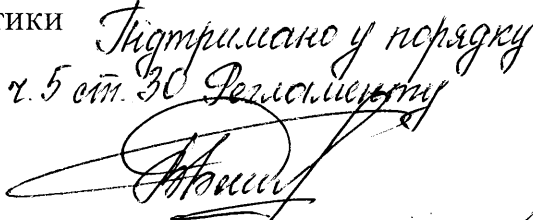 тики
Підтримано у порядку
ч. 5 ст. 30 Регламенту